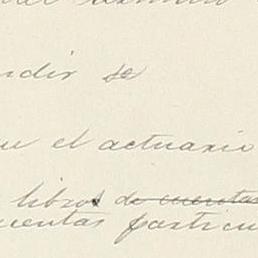 ndir se
el actuario
libros de cuentas
cuentas particu